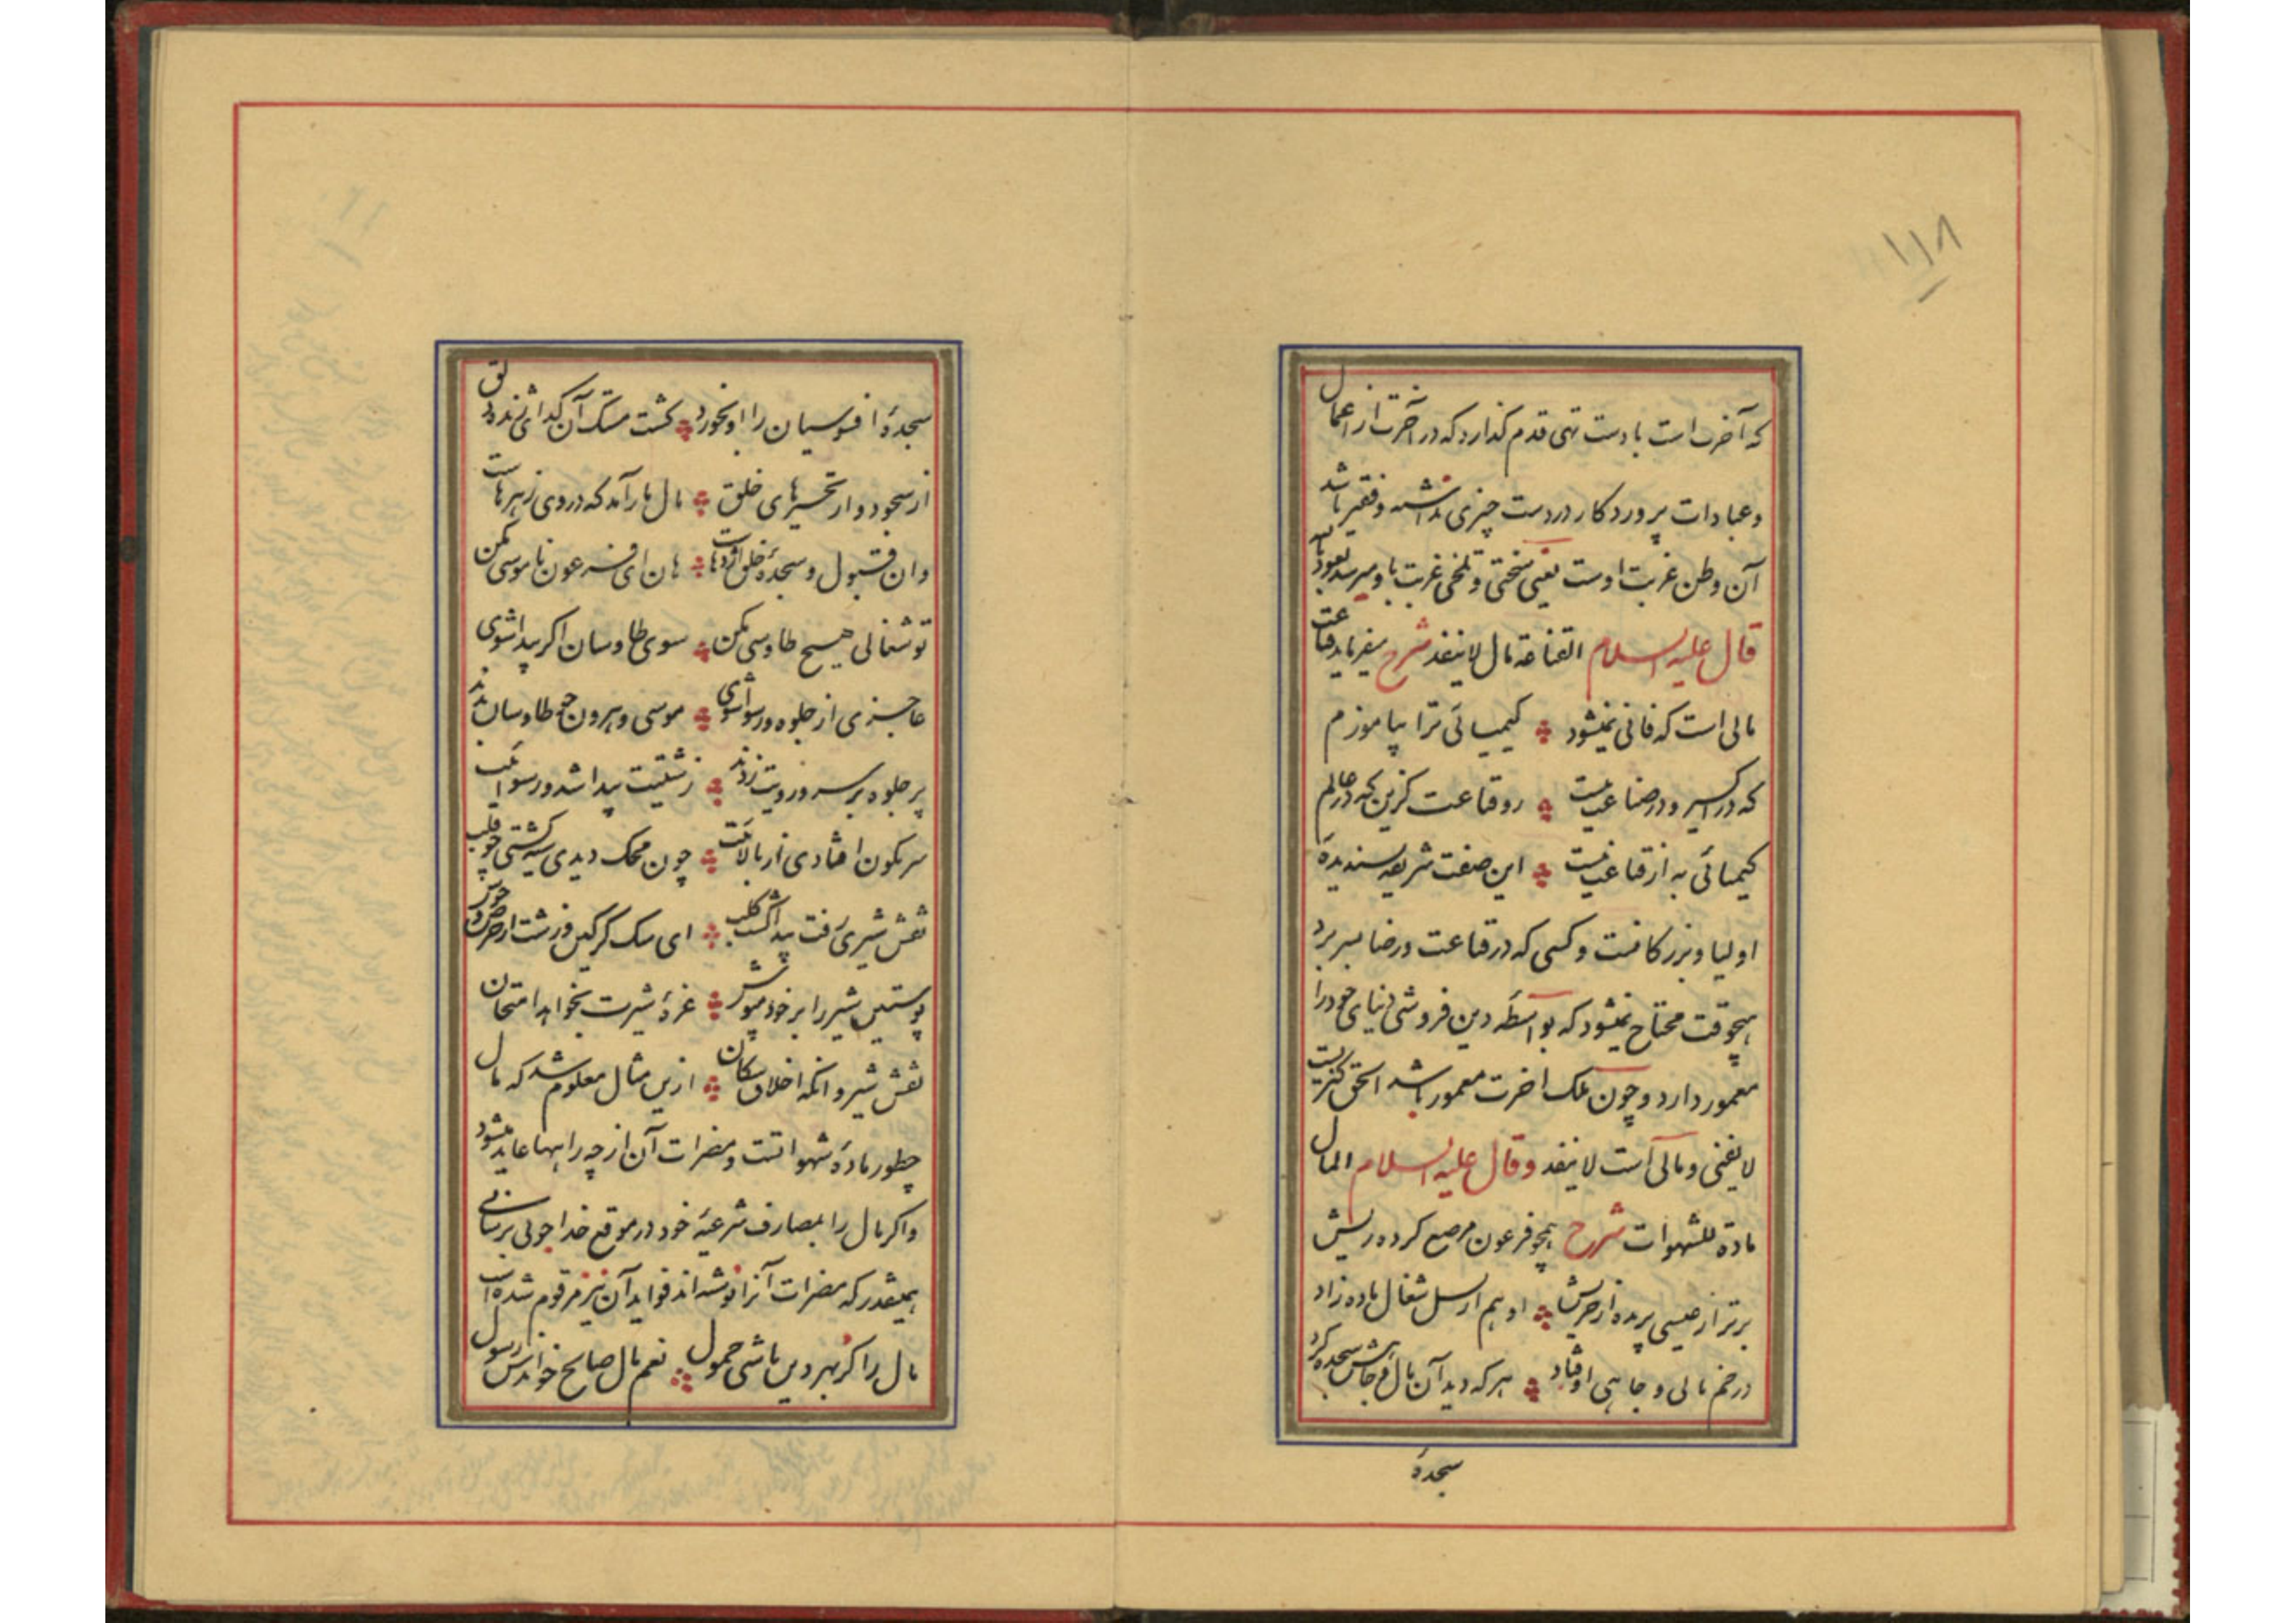 ۱۱۸
که آخرت است با دست تهی قدم گذارد که در آخرت از اعمال
و عبادات پروردکار در دست چیزی نداشته و فقیر باشد
آن وطن غربت اوست یعنی سختی و تلخی غربت باو میرسد نعوذ بالله
قال علیه السلام القناعة مال لا ینفد شرح میفرماید قناعت
مالی است که فانی نمیشود کیمیائی ترا بیاموزم
که در اکسیر و در صناعت نیست رو قناعت گزین که در عالم
کیمیائی به از قناعت نیست این صفت شریعه پسندیدهٔ
اولیا و بزرکانست و کسی که در قناعت و رضا بسر برد
هیچوقت محتاج نمیشود که بواسطهٔ دین فروشی دنیای خود را
معمور دارد و چون ملک اخرت معمور باشد الحق کنزیست
لا یفنی و مالی است لا ینفد و قال علیه السلام المال
مادة للشهوات شرح همچو فرعون مرصع کرده ریش
برتر از عیسی پریده از خریش او هم از نسل شغال ماده زاد
در خم مالی و جاهی اوفتاد هر که دید آن مال و جاهش سجده کرد
سجدهٔ
سجدهٔ افسوسیان را او بخورد کشت مستک آن کدای ژنده دلق
از سجود و از تحیرهای خلق مال مار آمد که در وی زهرهاست
وان قبول و سجدهٔ خلق اژدهاست هان ای فرعون ناموسی مکن
تو شغالی هیچ طاوسی مکن سوی طاوسان اکر پیدا شوی
عاجزی از جلوه و رسوا شوی موسی و هرون چو طاوسان بدند
پر جلوه بر سر و رویت زدند زشتیت پیدا شد و رسوائیت
سرنکون افتادی از بالائیت چون محک دیدی سیه کشتی چو قلب
نقش شیری رفت پیدا کشت کلب ای سک کرکین زشت از حرص و جوش
پوستین شیر را بر خود مپوش غرهٔ شیرت بخواهد امتحان
نقش شیر و انکه اخلاق سکان ازین مثال معلوم شد که مال
چطور مادهٔ شهواتست و مضرات آن از چه راهها عاید میشود
واکر مال را بمصارف شرعیهٔ خود در موقع خدا جوئی برسانی
همینقدر که مضرات آنرا نوشته‌اند فواید آن نیز مرقوم شده است
مال را کز بهر دین باشی حمول نعم مال صالح خواندش رسول